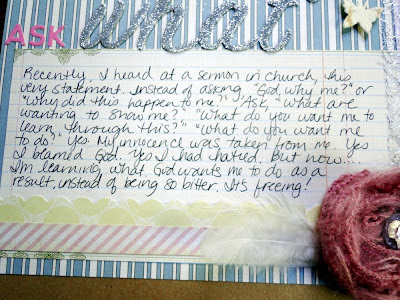 ASK what
Recently, I heard at a sermon in church, this
very statement. Instead of asking, "God, why me?" or
"why did this happen to me?" Ask, "What are
wanting to show me?", "What do you want me to
learn, through this?" "What do you want me
to do." Yes. My innocence was taken from me. Yes
I blamed God. Yes I had hatred. But now...
I'm learning what God wants me to do as a
result, instead of being so bitter. It's freeing!